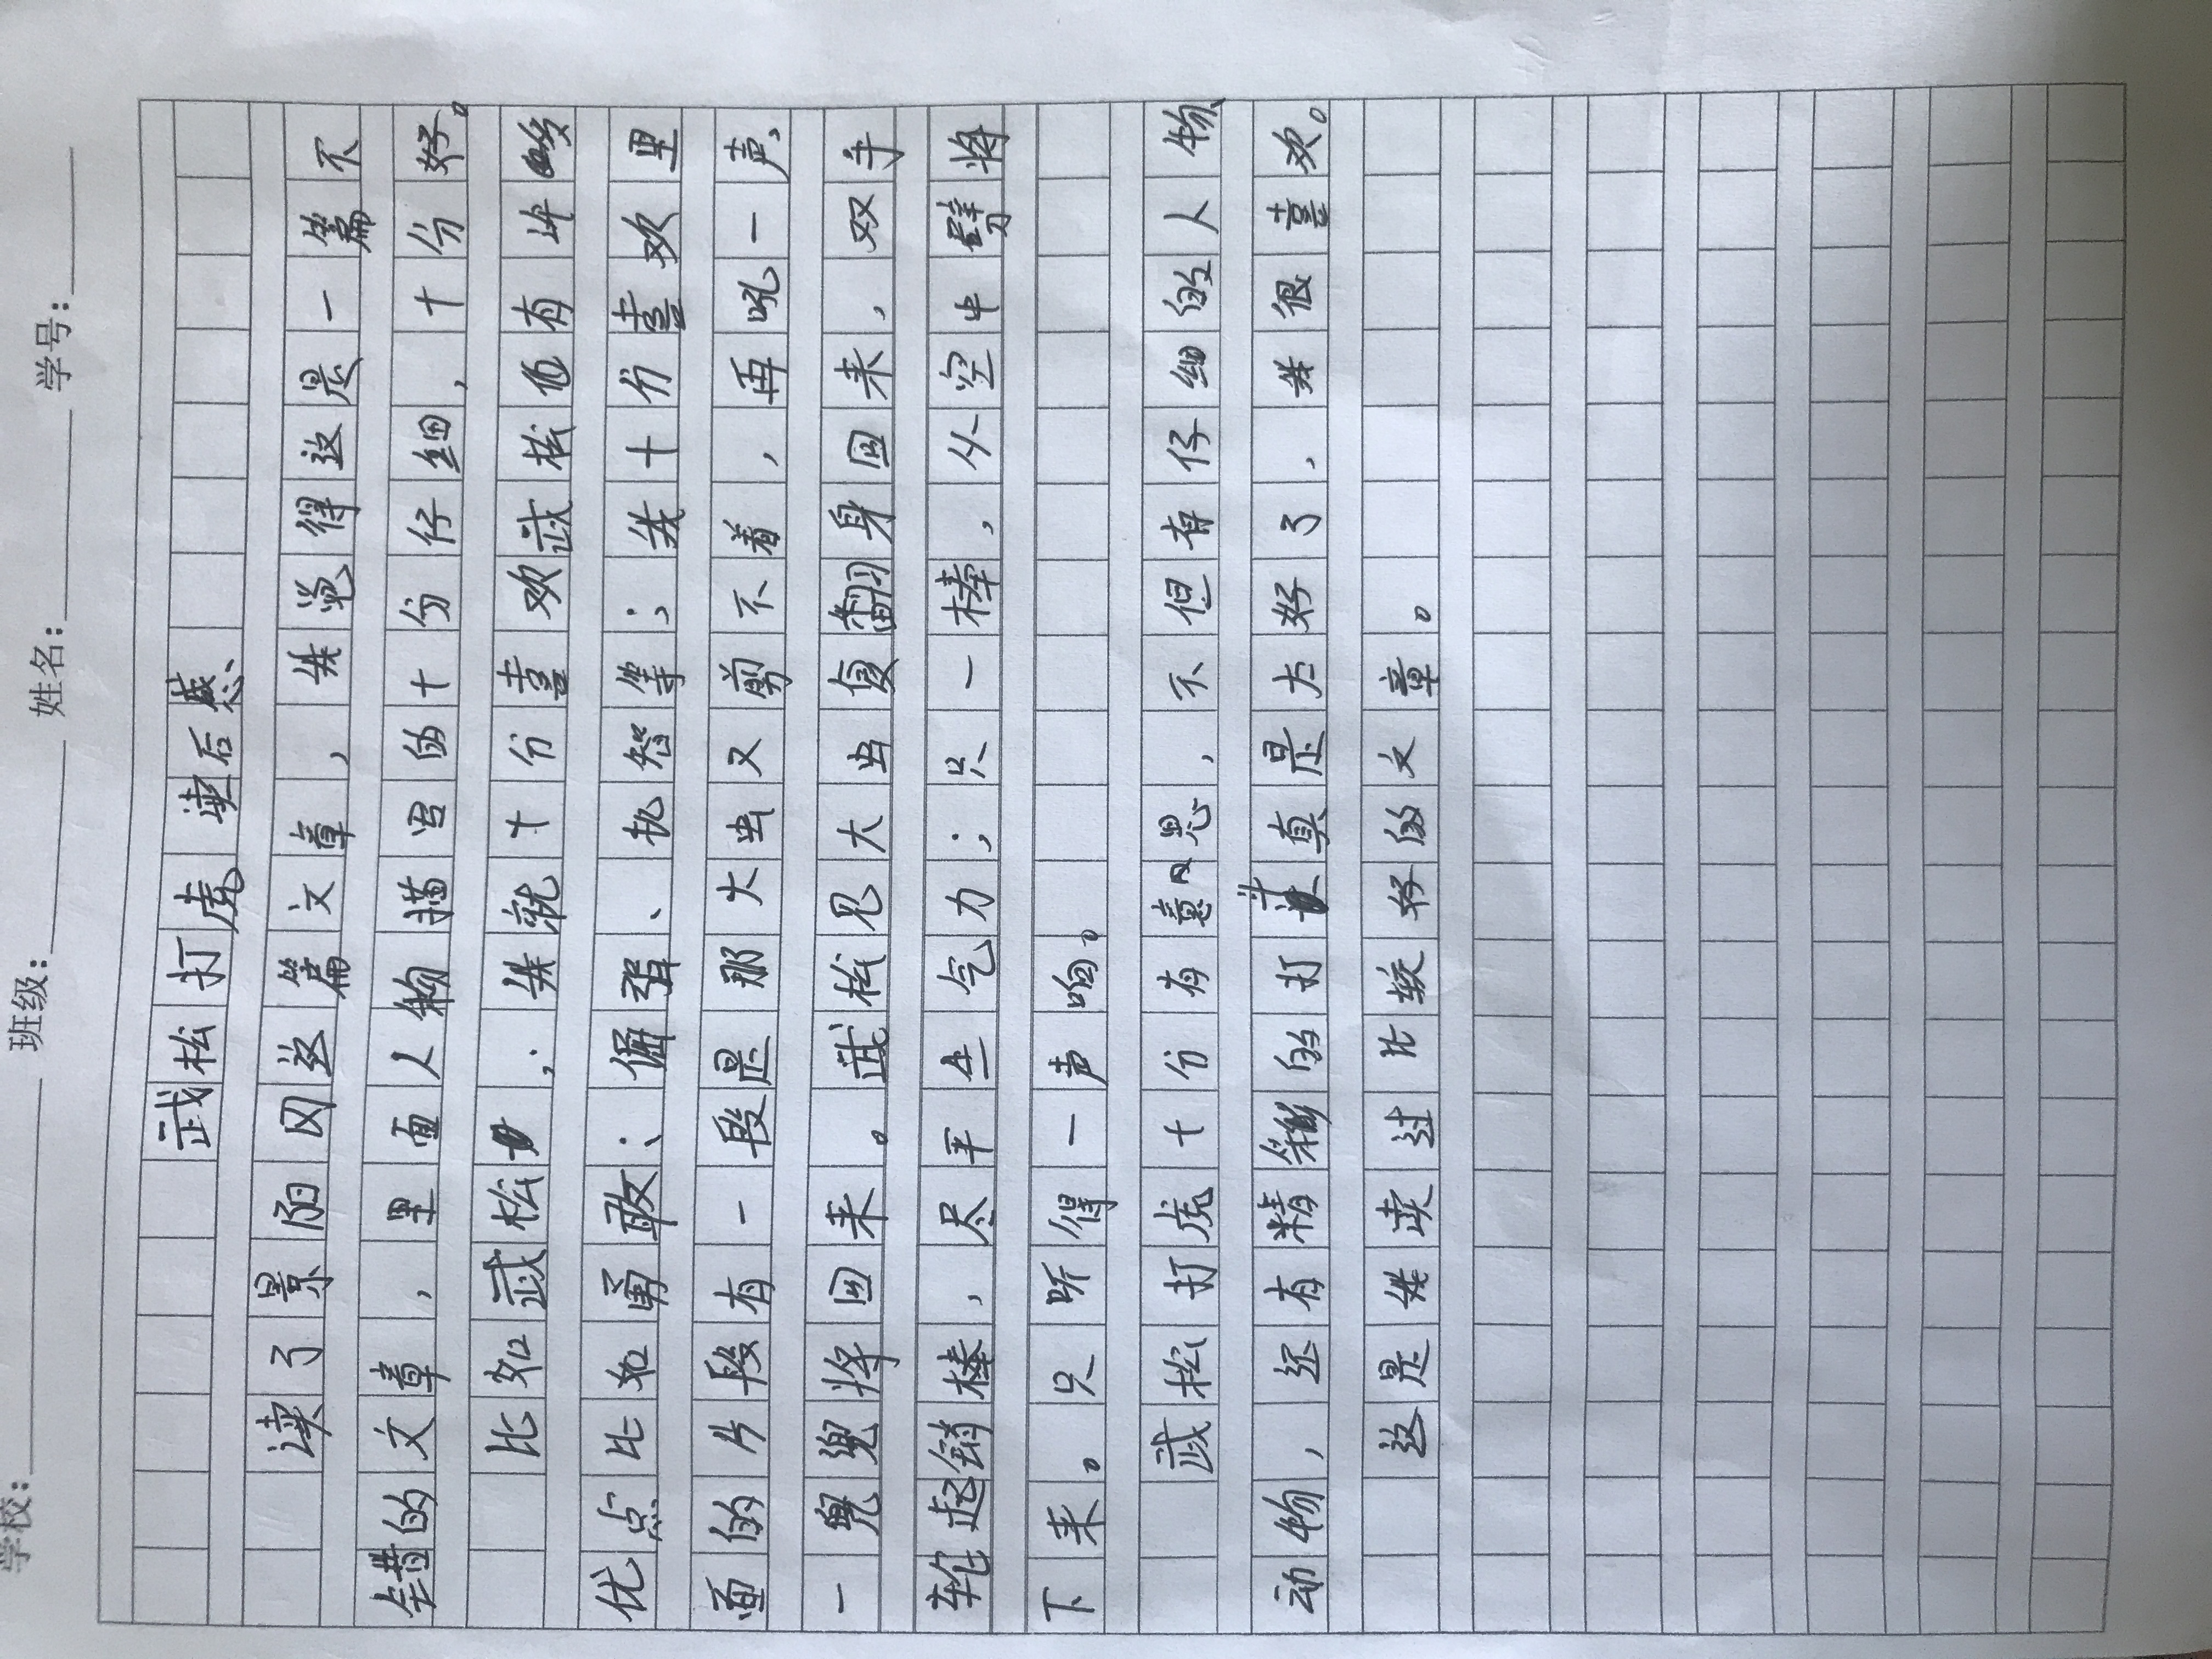 学校: 班级: 姓名: 学号:
武松打虎 读后感
读了景阳冈这篇文章，我觉得这是一篇不
错的文章，里面人物描写的十分仔细，十分好。
比如武松，我就十分喜欢武松他有许多
优点比如勇敢、倔强、机智等；我十分喜欢里
面的片段有一段是那大虫又剪不着，再吼一声，
一兜兜将回来。武松见大虫复翻身回来，双手
轮起销棒，尽平生气力；只一棒，从空中劈将
下来。只听得一声响。
武松打虎十分有意思，不但有仔细的人物、
动物，还有精彩的打斗真是太好了，我很喜欢。
这是我读过比较好的文章。